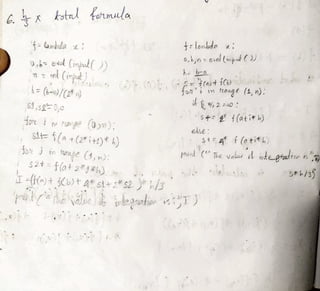 6. 1/3 x total formula
f = lambda x:
a,b = eval(input( ))
n = int(input)
h = (b-a)/(2*n)
s1,s2=0,0
for i in range (0,n):
s1+= f(a+(2*i+1)*h)
for j in range (1,n):
s2+= f(a+2*j*h)
I = (f(a)+ f(b)+ 4* s1+ 2*s2 )* h/3
print("The value of integration is:",I)
f= lambda x:
a,b,n = eval(input( ))
h= b-a
s = f(a)+ f(b)
for i in range (1,n):
if i%2==0:
s+= 2* f(a+i*h)
else:
s+= 4* f(a+i*h)
print("The value of integration is",
s*h/3)